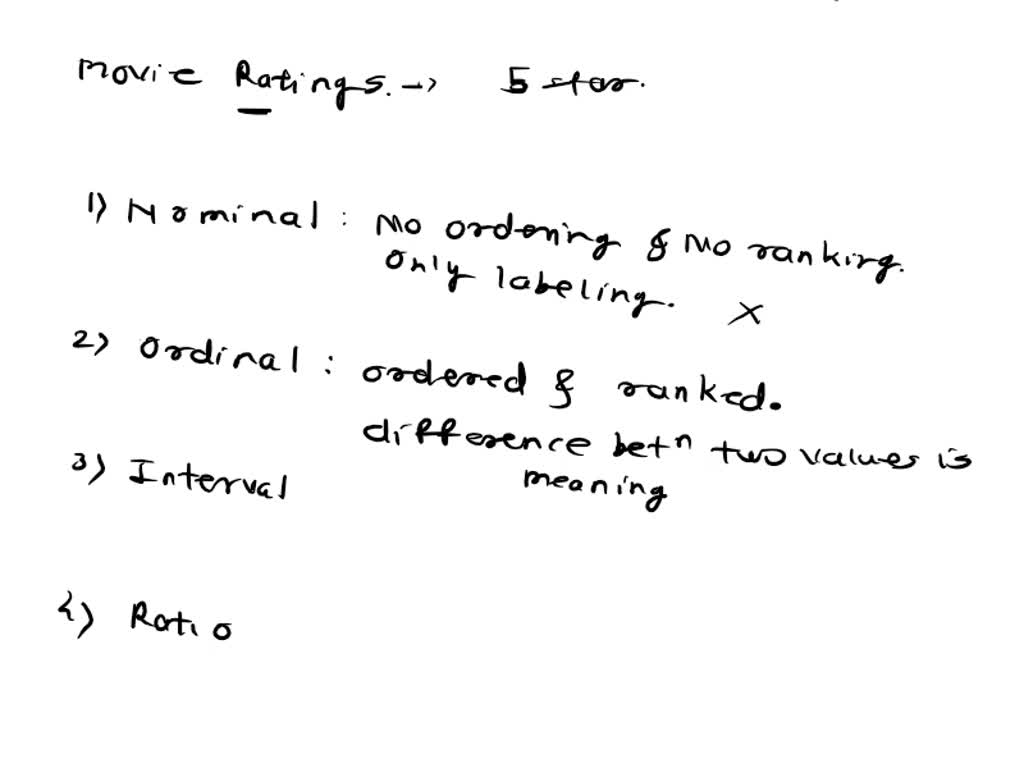 Movie Ratings. → 5 star.
1) Nominal : No ordening & No ranking.
only labeling. ×
2) Ordinal : ordered & ranked.
difference betⁿ two values is
meaning
3) Interval
4) Ratio